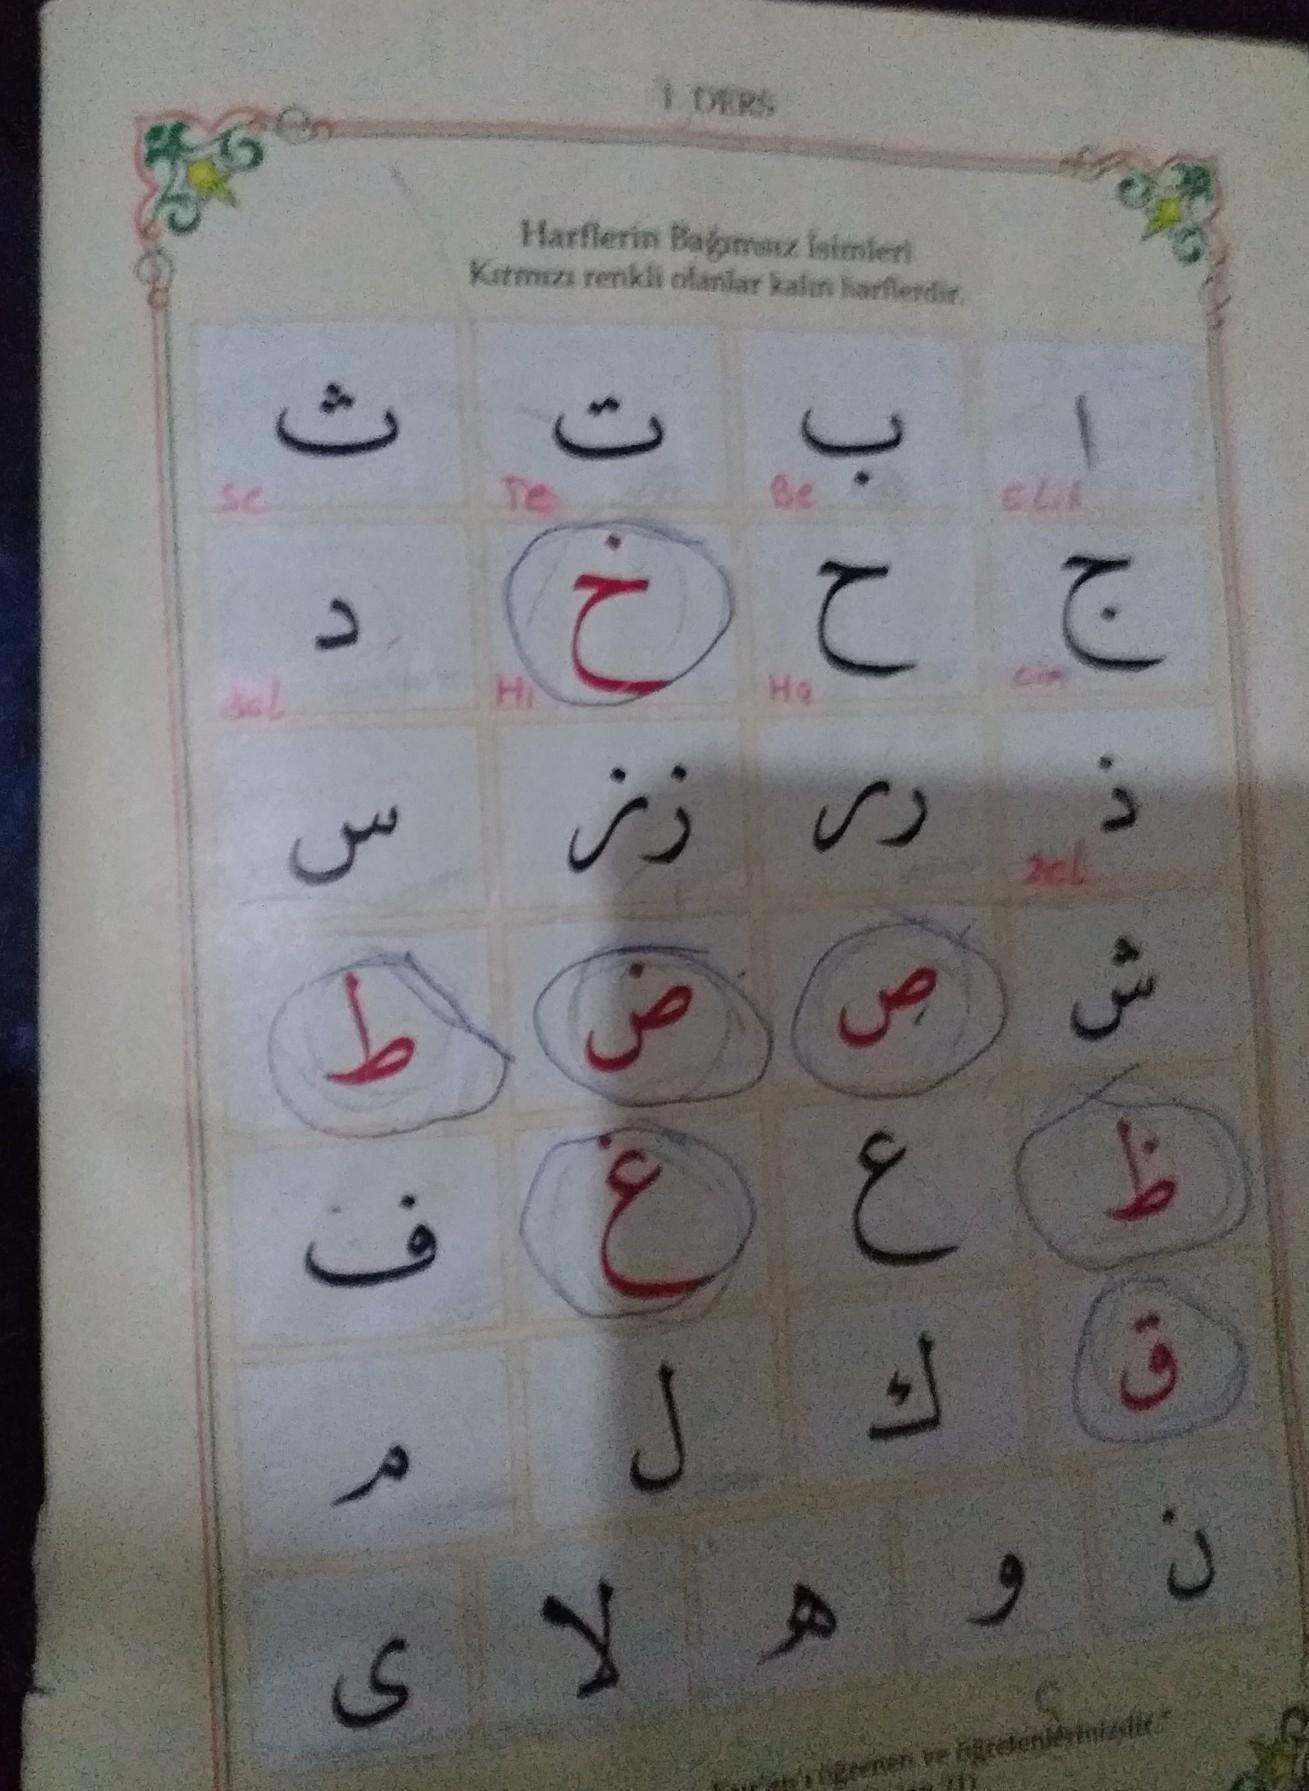 1. DERS
Harflerin Bağımsız İsimleri
Kırmızı renkli olanlar kalın harflerdir.
ا ب ت ث
ELif Be Te Se
ج ح خ د
cim Ha Hı dal
ذ ر ر ز ز س
zel
ش ص ض ط
ظ ع غ ف
ق ك ل م
ن و ه لا ى
öğrenen ve öğretenlerinizdir."